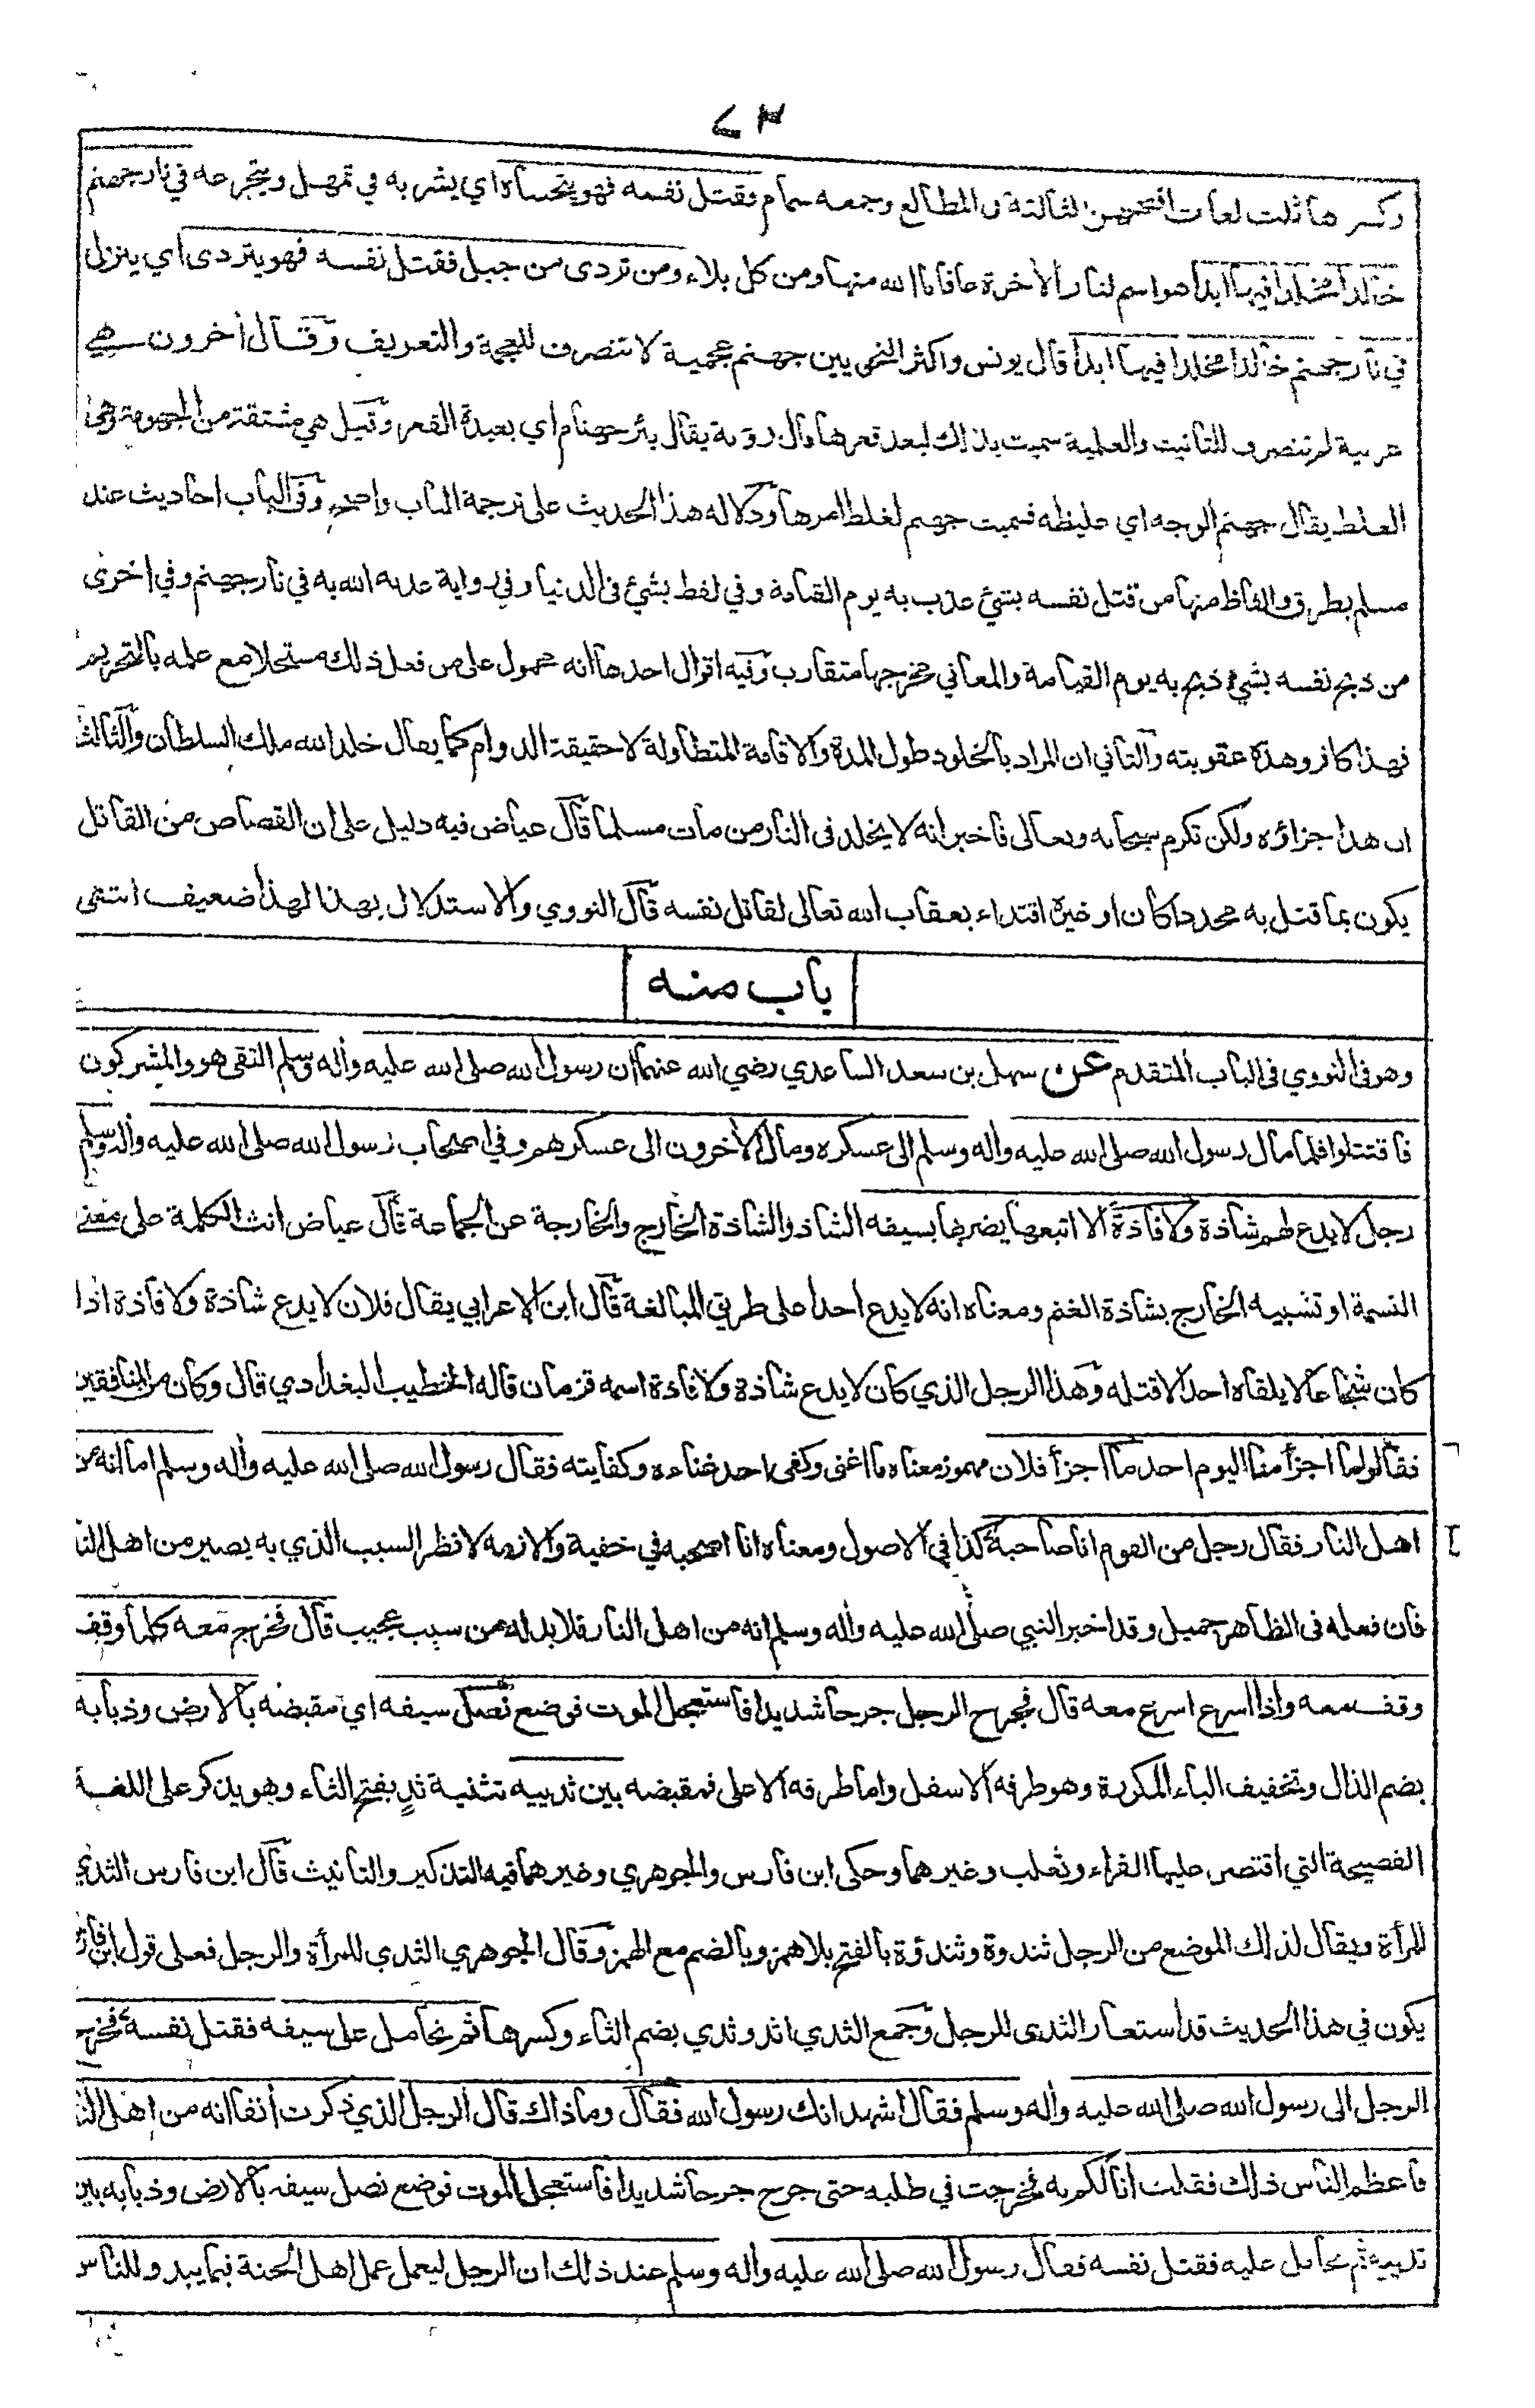 ٧٣
وكسرها ثلث لغات افصحهن الثالثة في المطالع وجمعه سمام فقتل نفسه فهو يتحساه اي يشربه في تمهل ويتجرعه في نار جهنم
خالدا مخلدا فيها ابدا هو اسم لنار الأخرة عافانا الله منها ومن كل بلاء ومن تردى من جبل فقتل نفسه فهو يتردى اي ينزل
في نار جهنم خالدا مخلدا فيها ابدا قال يونس واكثر النحويين جهنم عجمية لا تنصرف للعجمة والتعريف وقال أخرون هي
عربية لم تنصرف للتانيث والعلمية سميت بذلك لبعد قعرها قال روبة يقال بئر جهنام اي بعيدة القعر وقيل هي مشتقة من الجهومة وهي
الغلظ يقال جهنم الوجه اي غليظه فسميت جهنم لغلظ امرها ودلالة هذا الحديث على ترجمة الباب واضحة وفي الباب احاديث عند
مسلم بطرق والفاظ منها من قتل نفسه بشئ عذب به يوم القيامة وفي لفظ بشئ في الدنيا وفي رواية عذبه الله به في نار جهنم وفي اخرى
من ذبح نفسه بشئ ذبح به يوم القيامة والمعاني مخرجها متقارب وفيه اقوال احدها انه محمول على من فعل ذلك مستحلا مع علمه بالتحريم
فهذا كافر وهذه عقوبته والثاني ان المراد بالخلود طول المدة والاقامة المتطاولة لا حقيقة الدوام كما يقال خلد الله ملك السلطان والثالث
ان هذا جزاؤه ولكن تكرم سبحانه وتعالى فاخبر انه لا يخلد في النار من مات مسلما قال عياض فيه دليل على ان القصاص من القاتل
يكون بما قتل به محددا كان او غيره اقتداء بعقاب الله تعالى لقاتل نفسه قال النووي والاستدلال بهذا لهذا ضعيف انتهى
باب منه
وهو في النووي في الباب المتقدم عن سهل بن سعد الساعدي رضي الله عنهما ان رسول الله صلى الله عليه وأله وسلم التقى هو والمشركون
فاقتتلوا فلما مال رسول الله صلى الله عليه وأله وسلم الى عسكره ومال الأخرون الى عسكرهم وفي اصحاب رسول الله صلى الله عليه وأله وسلم
رجل لا يدع لهم شاذة ولا فاذة الا اتبعها يضربها بسيفه الشاذ والشاذة الخارج والخارجة عن الجماعة قال عياض انث الكلمة على معنى
النسمة او تشبيه الخارج بشاذة الغنم ومعناه انه لا يدع احدا على طريق المبالغة قال ابن الاعرابي يقال فلان لا يدع شاذة ولا فاذة اذا
كان شجاعا لا يلقاه احد الا قتله وهذا الرجل الذي كان لا يدع شاذة ولا فاذة اسمه قزمان قاله الخطيب البغدادي قال وكان من المنافقين
فقالوا ما اجزأ منا اليوم احد ما اجزأ فلان مهموز معناه ما اغنى وكفى احد غناءه وكفايته فقال رسول الله صلى الله عليه وأله وسلم اما انه من
اهل النار فقال رجل من القوم انا صاحبه كذا في الاصول ومعناه انا اصحبه في خفية والازمه لانظر السبب الذي به يصير من اهل النا
فان فعله في الظاهر جميل وقد اخبر النبي صلى الله عليه وأله وسلم انه من اهل النار فلا بد له من سبب عجيب قال فخرج معه كلما وقف
وقف معه واذا اسرع اسرع معه قال فجرح الرجل جرحا شديدا فاستعجل الموت فوضع نصل سيفه اي مقبضه بالارض وذبابه
بضم الذال وتخفيف الباء المكررة وهو طرفه الاسفل واما طرفه الاعلى فمقبضه بين ثدييه تثنية ثدي بفتح الثاء وهو يذكر على اللغة
الفصيحة التي اقتصر عليها الفراء وثعلب وغيرهما وحكى ابن فارس والجوهري وغيرهما فيه التذكير والتانيث قال ابن فارس الثدي
للمرأة ويقال لذلك الموضع من الرجل ثندوة وثندؤة بالفتح بلا همز وبالضم مع الهمز وقال الجوهري الثدي للمرأة والرجل فعلى قول ابن فارس
يكون في هذا الحديث قد استعار الثدي للرجل وجمع الثدي اثد وثدي بضم الثاء وكسرها ثم تحامل على سيفه فقتل نفسه فخرج
الرجل الى رسول الله صلى الله عليه وأله وسلم فقال اشهد انك رسول الله فقال وما ذاك قال الرجل الذي ذكرت أنفا انه من اهل النا
فاعظم الناس ذلك فقلت انا لكم به فخرجت في طلبه حتى جرح جرحا شديدا فاستعجل الموت فوضع نصل سيفه بالارض وذبابه بين
ثدييه ثم تحامل عليه فقتل نفسه فقال رسول الله صلى الله عليه وأله وسلم عند ذلك ان الرجل ليعمل عمل اهل الجنة فيما يبدو للناس